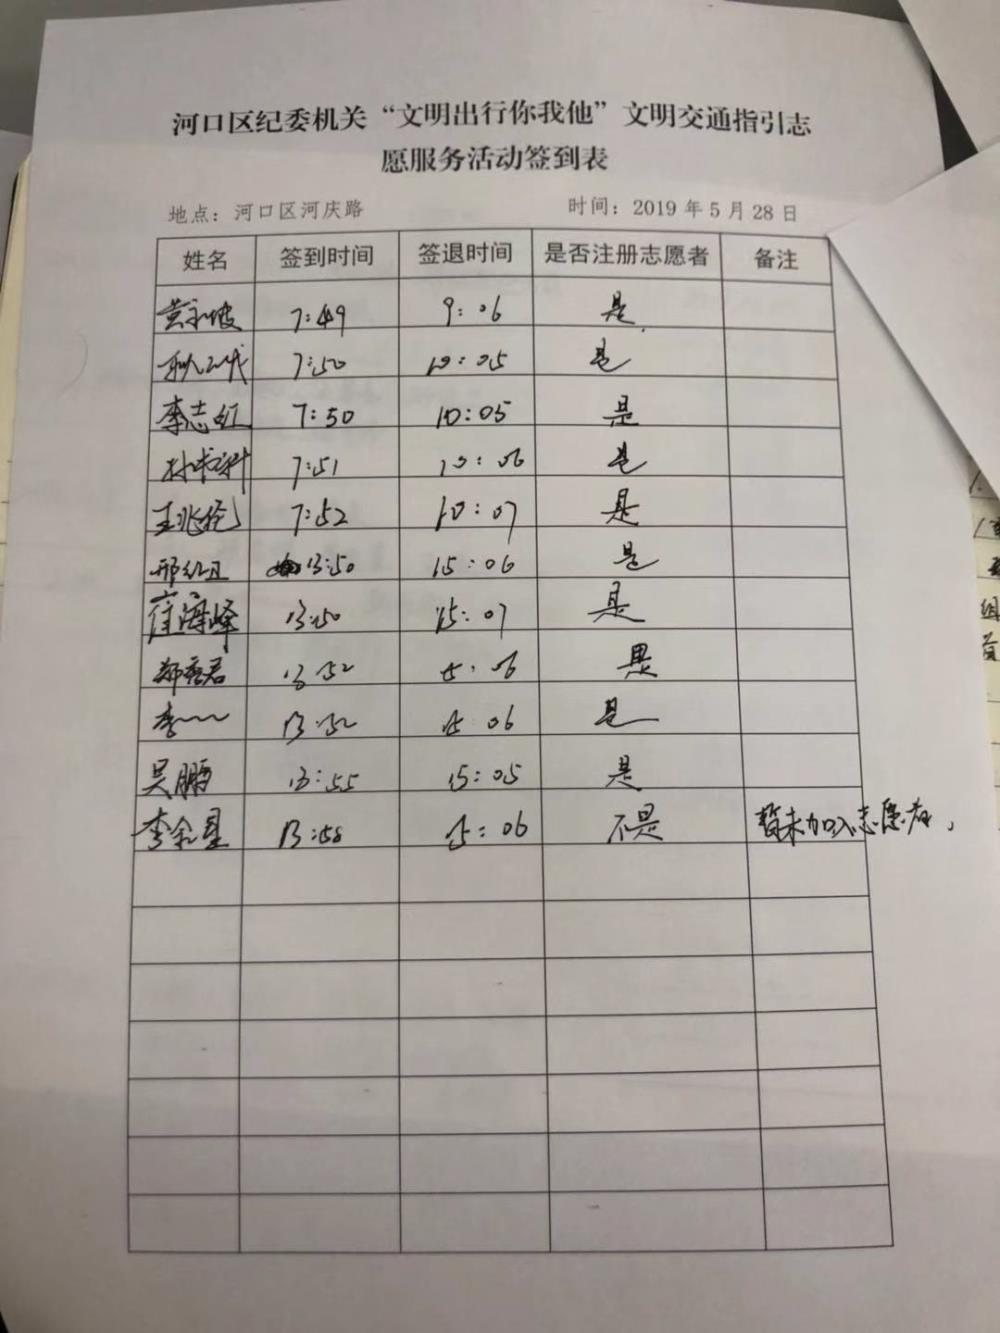 河口区纪委机关“文明出行你我他”文明交通指引志
愿服务活动签到表
地点：河口区河庆路 时间：2019年5月28日
姓名 签到时间 签退时间 是否注册志愿者 备注
7:49 9:06 是
7:50 10:05 是
李志红 7:50 10:05 是
7:51 10:06 是
王兆伦 7:52 10:07 是
邢红卫 13:50 15:06 是
崔海峰 13:50 15:07 是
郑春君 13:52 15:06 是
李一一 13:52 15:06 是
吴鹏 13:55 15:05 是
李金星 13:58 15:06 不是 暂未加入志愿者,